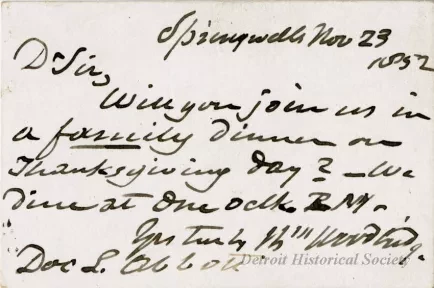 Springwells Nov 23
1852
Dr Sir,
Will you join us in
a family dinner on
Thanksgiving day? - We
dine at One oclk P.M.
Yrs truly Wm Woodbridge
Doc L. Abbott
Detroit Historical Society